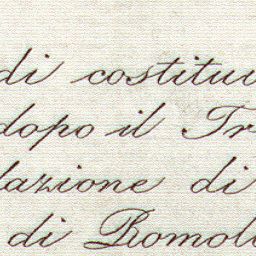 di costitui
dopo il Tr
lazione di
di Romolo